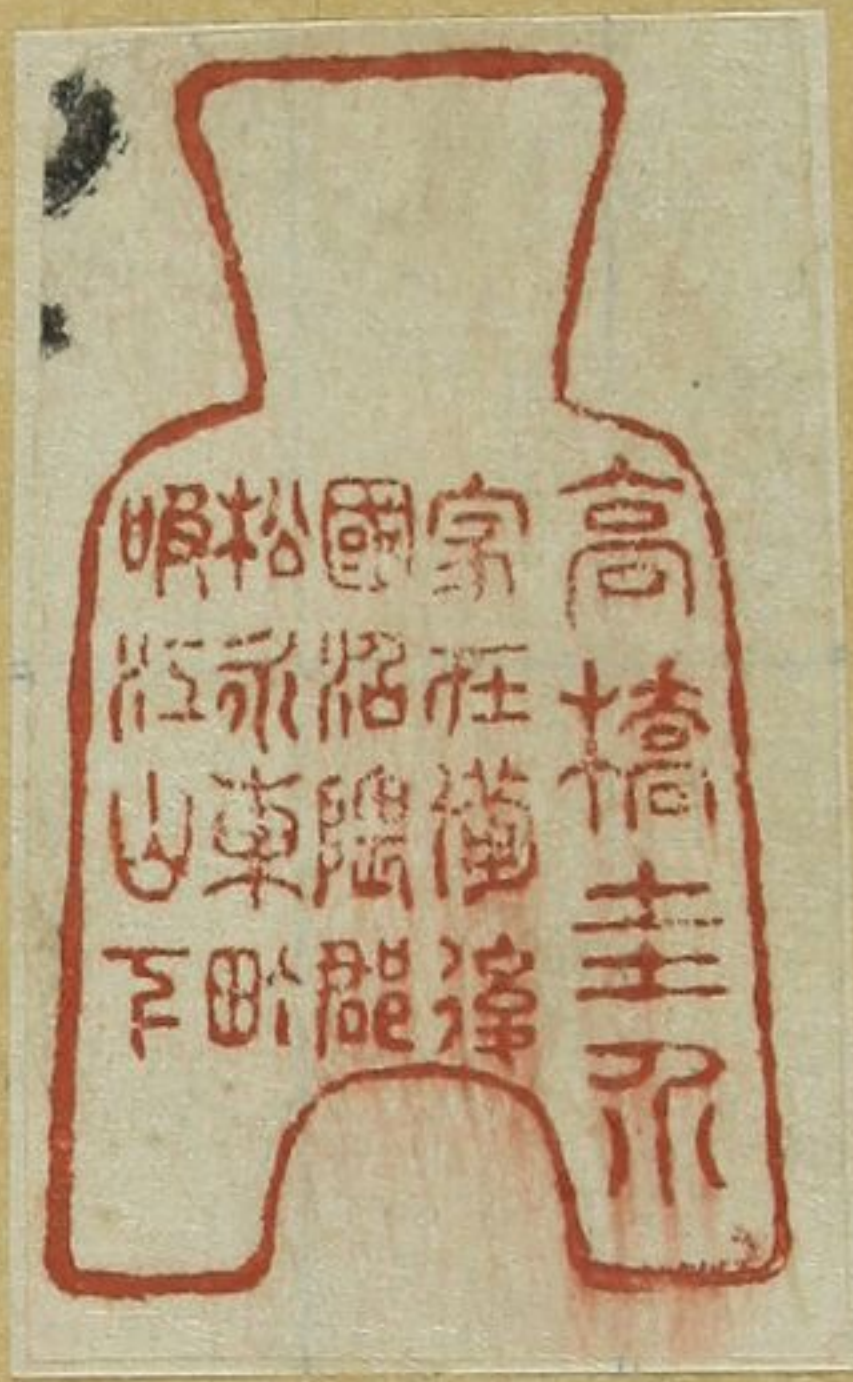 高橋圭
家在備後
國沼隈郡
松永東町
江山下